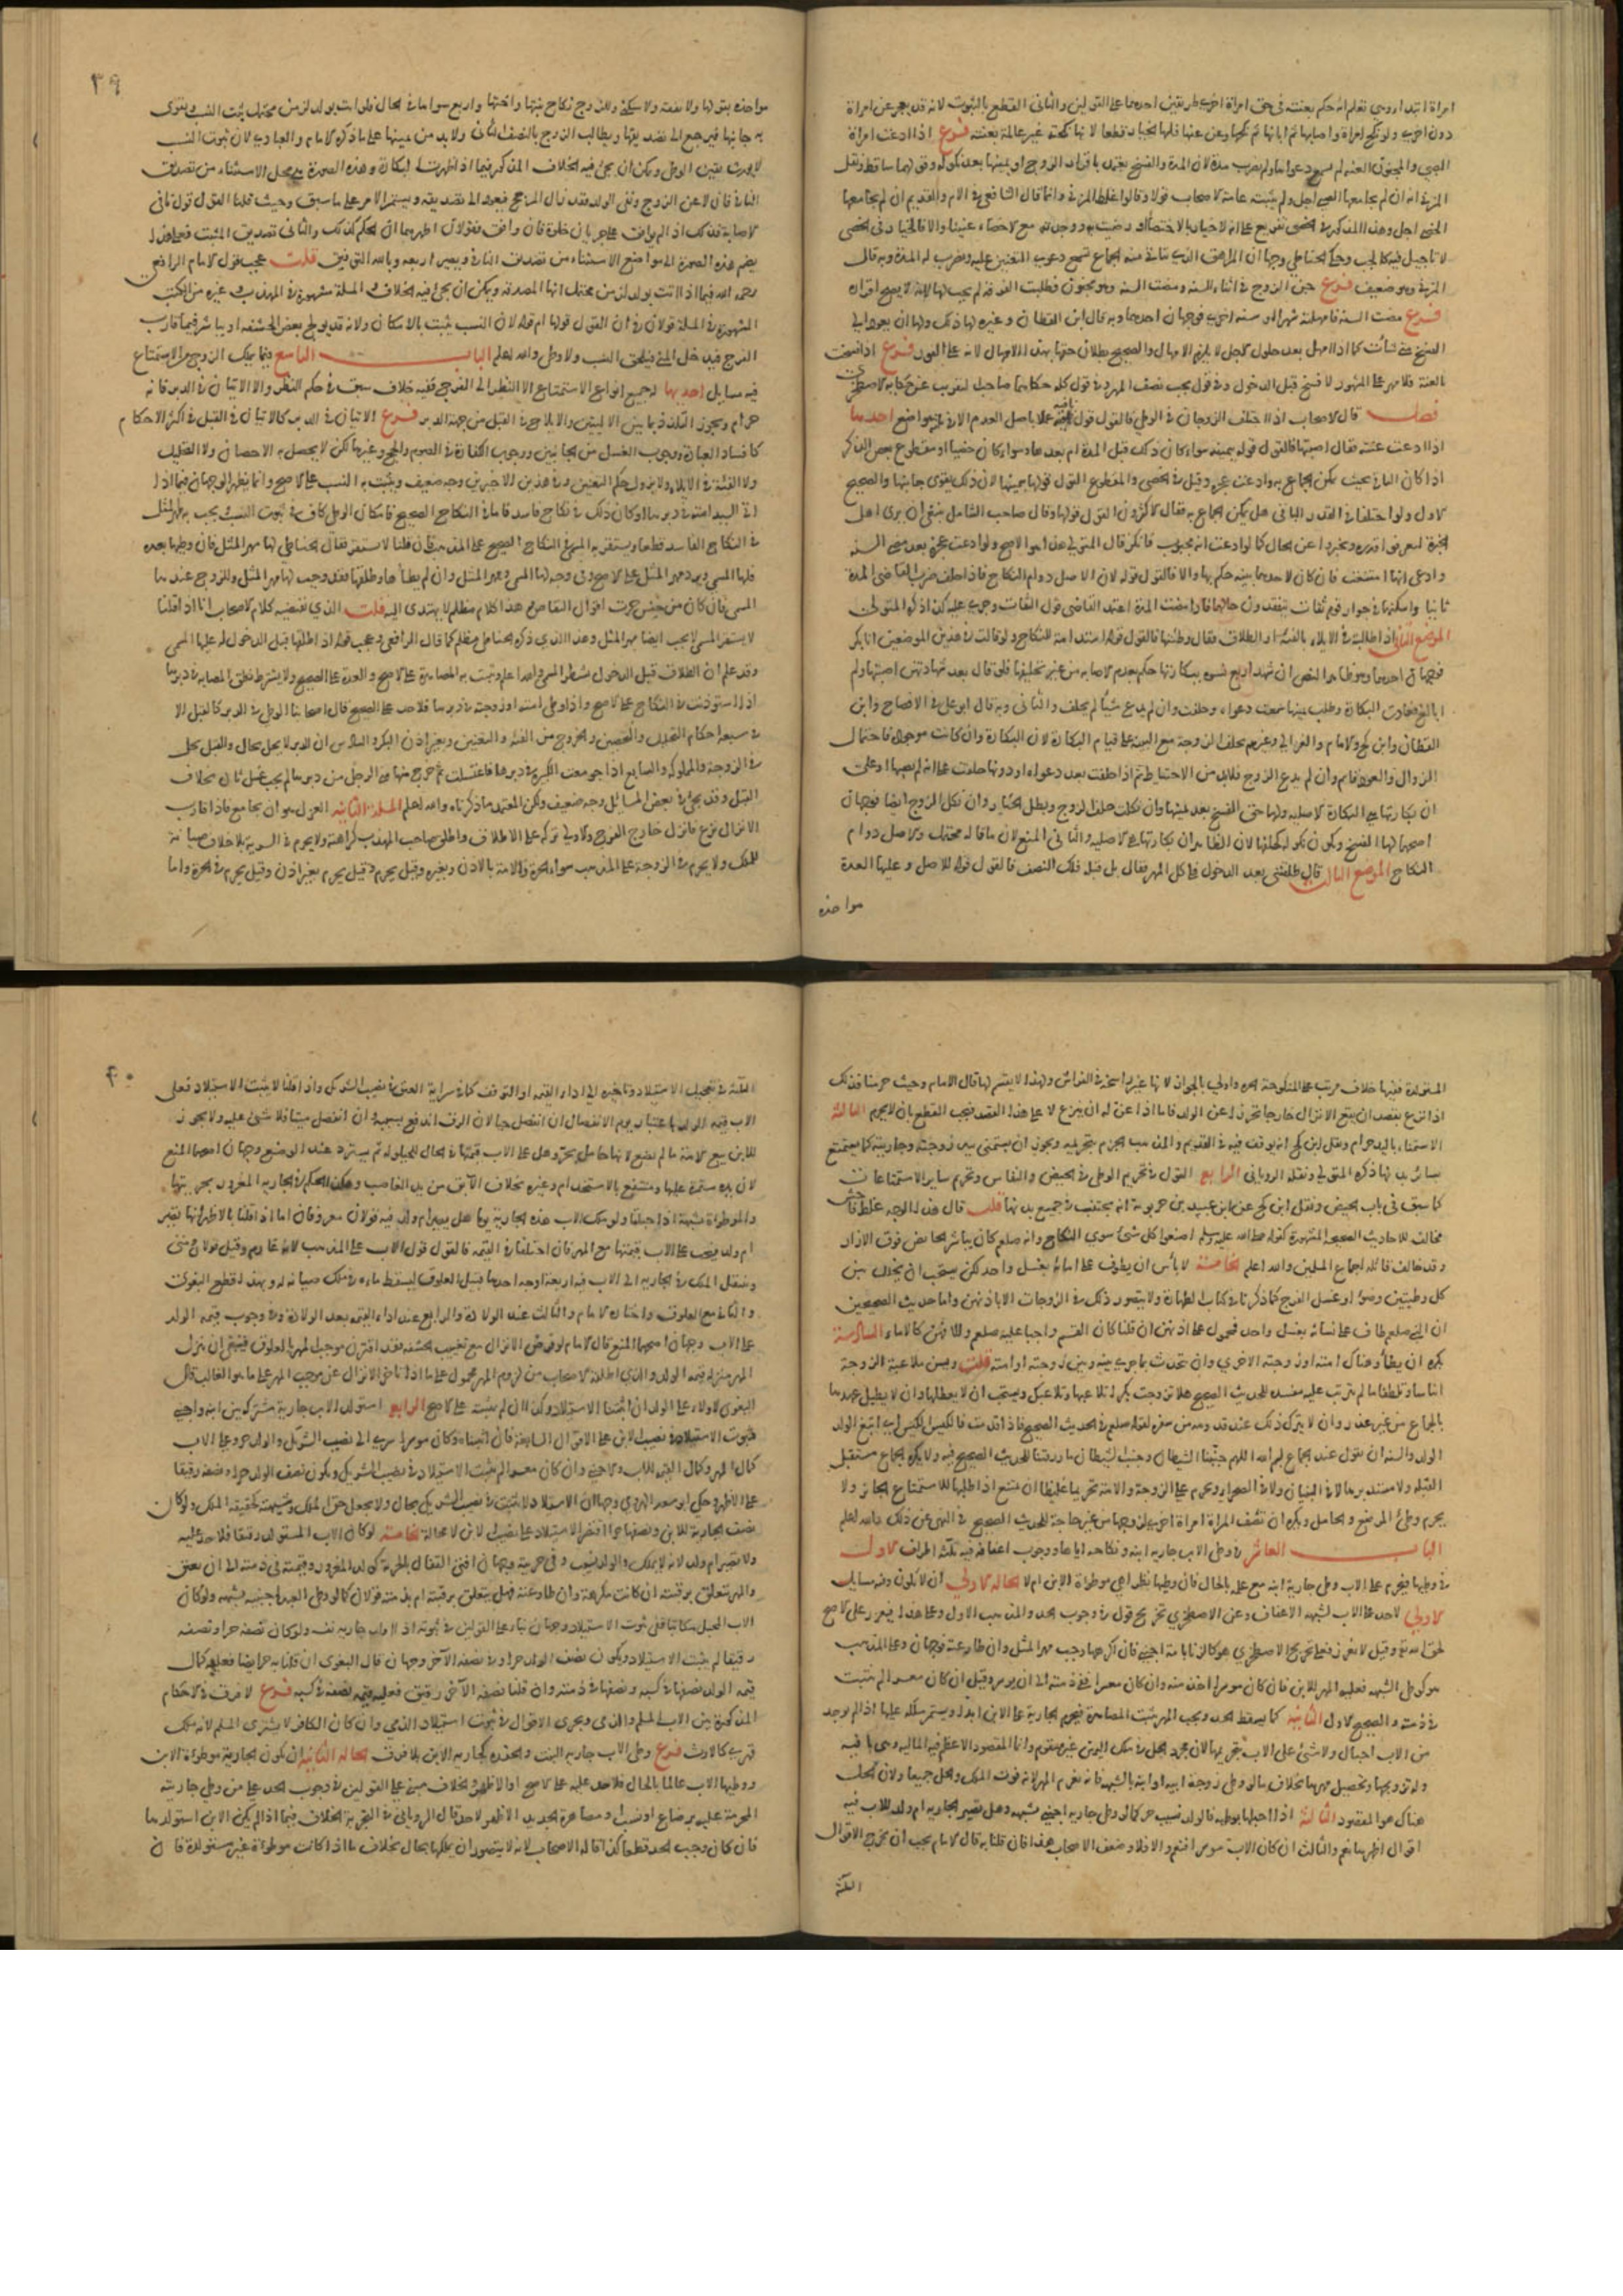 امراة ابتدا ومتى نعلم انه حكم بعنته فى حق امراة اخرى طريقين احدهما على القولين والثانى القطع بالثبوت لانه قد يعجز عن امراة
دون اخرى ولو نكح امراة واصابها ثم ابانها ثم نكحها وعن عنها فلها الخيار قطعا لانها نكحته غير عالمة بعنته فرع اذا ادعت امراة
الصبى والمجنون العنة لم تسمع دعواها ولم يضرب مدة لان المدة والفسخ يعتمد باقرار الزوج او يمينها بعد نكوله وقولهما ساقط ونقل
المزنى انه ان لم يجامعها الصبى اجل ولم يثبته عامة الاصحاب قولا وقالوا غلط المزنى وانما قال الشافعى فى الام والقديم ان لم يجامعها
الخصى اجل وهذا المذكور فى الخصى تفريع على انه لا خيار بالاخصاء او رضيت به ووجدته مع الاخصاء عنينا والا فالخيار فى الخصى
لا تاجيل فيه كالجب وحكى الحناطى وجها ان المراهق الذى يتاتى منه الجماع تسمع دعوى التعنين عليه وتضرب له المدة وبه قال
المزنى وهو ضعيف فرع جن الزوج فى اثناء السنة ومضت السنة وهو مجنون فطلبت الفرقة لم يجب لها لانه لا يصح اقراره
فرع مضت السنة فامهلته شهرا او سنة اخرى فوجهان احدهما وبه قال ابن القطان وغيره لها ذلك ولها ان يعود الى
الفسخ متى شاءت كما اذا امهل بعد حلول الاجل لا يلزم الامهال والصحيح بطلان حقها بهذا الامهال لانه على الفور فرع اذا فسخت
بالعنة فلا مهر على المشهور لانه فسخ قبل الدخول وفى قول يجب نصف المهر وفى قول كله حكاهما صاحب التقريب عن حكاية الاصطخرى
فصل قال الاصحاب اذا اختلف الزوجان فى الوطى فالقول قول نافيه عملا باصل العدم الا فى ثلاثة مواضع احدها
اذا ادعت عنته فقال اصبتها فالقول قوله بيمينه سواء كان ذلك قبل المدة ام بعدها وسواء كان خصيا او مقطوع بعض الذكر
اذا كان الباقى بحيث يمكن الجماع به وادعت عجزه وقيل فى الخصى والمقطوع القول قولها بيمينها لان ذلك يقوى جانبها والصحيح
الاول ولو اختلفا فى القدر الباقى هل يمكن الجماع به فقال الاكثرون القول قولها وقال صاحب الشامل ينبغى ان يرى اهل
الخبرة ليعرفوا قدره ويخبروا عن الحال كما لو ادعت انه مجبوب فانكر قال المتولى هذا هو الاصح ولو ادعت عجزه بعد مضى السنة
وادعى انها امتنعت فان كان لاحدهما بينة حكم بها والا فالقول قوله لان الاصل دوام النكاح فاذا حلف ضرب القاضى المدة
ثانيا واسكنهما فى جوار قوم ثقات يتفقدون حالهما فاذا مضت المدة اعتمد القاضى قول الثقات وجرى عليه كذا ذكره المتولى
الموضع الثانى اذا طالبته فى الايلاء بالفيئة او الطلاق فقال وطئتها فالقول قوله استدامة للنكاح ولو قالت فى هذين الموضعين انا بكر
فوجهان احدهما وهو ظاهر النص ان شهد اربع نسوة ببكارتها حكم بعدم الاصابة من غير تحليفها فلو قال بعد شهادتهن اصبتها ولم
ابالغ فعادت البكارة وطلب يمينها سمعت دعواه وحلفت وان لم يدع شيئا لم يحلف والثانى وبه قال ابو على فى الافصاح وابن
القطان وابن كج والامام والغزالى وغيرهم يحلف الزوجة مع البينة على قيام البكارة لان البكارة وان كانت موجودة فاحتمال
الزوال والعود قايم وان لم يدع الزوج فلا بد من الاحتياط ثم اذا حلفت بعد دعواه او دونها حلفت على انه لم يصبها او على
ان بكارتها هى البكارة الاصلية ولها حق الفسخ بعد يمينها وان نكلت حلف الزوج وبطل الخيار وان نكل الزوج ايضا فوجهان
اصحهما لها الفسخ ويكون نكوله كحلفها لان الظاهر ان بكارتها هى الاصلية والثانى المنع لان ما قاله محتمل والاصل دوام
النكاح الموضع الثالث قال طلقتنى بعد الدخول فلى كل المهر فقال بل قبله فلك النصف فالقول قوله للاصل وعليها العدة
مواخذة
٣٩
مواخذة بقولها ولا نفقة ولا سكنى وللزوج نكاح بنتها واختها واربع سواها فى الحال فلو اتت بولد لزمن محتمل يثبت النسب ويقوى
به جانبها فيرجع الى تصديقها ويطالب الزوج بالنصف الثانى ولا بد من يمينها على ما ذكره الامام والعبادى لان ثبوت النسب
لا يورث يقين الوطى ويمكن ان يجئ فيه الخلاف المذكور فيما اذا ظهرت البكارة وهذه الصورة هى محل الاستثناء من تصديق
النافى فان لاعن الزوج ونفى الولد فقد زال المرجح فيعود الى تصديقه ويستمر الامر على ما سبق وحيث قلنا القول قول نافى
الاصابة فذلك اذا لم يوافق على جريان خلوة فان وافق فقولان اظهرهما ان الحكم كذلك والثانى تصديق المثبت فعلى هذا
يضم هذه الصورة الى مواضع الاستثناء من تصديق النافى ويصير اربعة وبالله التوفيق قلت عجب قول الامام الرافعى
رحمه الله فيما اذا اتت بولد لزمن محتمل انها المصدقة ويمكن ان يجئ فيه الخلاف والمسلة مشهورة فى المهذب وغيره من الكتب
المشهورة فى المسلة قولان فى ان القول قولها ام قوله لان النسب يثبت بالامكان ولانه قد يولج بعض الحشفة او يباشر فيما قارب
الفرج فيدخل المنى فيلحق النسب ولا وطى والله اعلم الباب التاسع فيما يملك الزوج من الاستمتاع
فيه مسايل احديها له جميع انواع الاستمتاع الا النظر الى الفرج ففيه خلاف سبق فى حكم النظر والا الاتيان فى الدبر فانه
حرام ويجوز التلذذ بما بين الاليتين والايلاج فى القبل من جهة الدبر فرع الاتيان فى الدبر كالاتيان فى القبل فى اكثر الاحكام
كافساد العبادة ووجوب الغسل من الجانبين ووجوب الكفارة فى الصوم والحج وغيرها لكن لا يحصل به الاحصان ولا التحليل
ولا الفيئة فى الايلاء ولا يزول حكم التعنين وفى هذين الاخيرين وجه ضعيف ويثبت به النسب على الاصح وانما يظهر الوجهان فيما اذا
اتى السيد امته فى دبرها او كان ذلك فى نكاح فاسد فاما فى النكاح الصحيح فامكان الوطى كاف فى ثبوت النسب يجب به مهر المثل
فى النكاح الفاسد قطعا ويستقر به المسمى فى النكاح الصحيح على المذهب فان قلنا لا يستقر فقال الحناطى لها مهر المثل فان وطيها بعده
فلها المسمى ويرد مهر المثل على الاصح وفى وجه لها المسمى ومهر المثل وان لم يطأها وطلقها فقد وجب لها مهر المثل وللزوج عندها
المسمى فان كان من جنس جرت اقوال التقاص هذا كلام مظلم لا يهتدى اليه قلت الذى نقتضيه كلام الاصحاب انا اذا قلنا
لا يستقر المسمى لا يجب ايضا مهر المثل وهذا الذى ذكره الحناطى مظلم كما قال الرافعى وعجب قوله اذا طلقها قبل الدخول له عليها المسمى
وقد علم ان الطلاق قبل الدخول يشطر المسمى والله اعلم ويثبت به المصاهرة على الاصح والعدة على الصحيح ولا يشترط نطق المصابة فى دبرها
اذا استوذنت فى النكاح على الاصح واذا وطى امته او زوجته فى دبرها فلا حد على الصحيح قال اصحابنا الوطى فى الدبر كالقبل الا
فى سبعة احكام التحليل والتحصين والخروج من الفيئة والتعنين ويغير اذن البكر والسادس ان الدبر لا يحل بحال والقبل يحل
فى الزوجة والمملوكة والسابع اذا جومعت الكبيرة فى دبرها فاغتسلت ثم خرج منها منى الرجل من دبرها لم يجب غسل ثان بخلاف
القبل وقد يجئ فى بعض المسائل وجه ضعيف ولكن المعتمد ما ذكرناه والله اعلم المسلة الثانية العزل هو ان يجامع فاذا قارب
الانزال نزع فانزل خارج الفرج والاولى تركه على الاطلاق واطلق صاحب المهذب كراهته ولا يحرم فى السرية بلا خلاف صيانة
للملك ولا يحرم فى الزوجة على المذهب سواء الحرة والامة بالاذن وبغيره وقيل يحرم وقيل يحرم بغير اذن وقيل يحرم فى الحرة واما
المستولدة ففيها خلاف مرتب على المنكوحة الحرة واولى بالجواز لانها غير راسخة فى الفراش ولهذا لا يقسم لها قال الامام وحيث حرمنا فذلك
اذا نزع بقصد ان يقع الانزال خارجا تحرزا عن الولد فاما اذا عن له ان ينزع لا على هذا القصد فيجب القطع بان لا يحرم الثالثة
الاستمناء باليد حرام ونقل ابن كج انه توقف فيه فى القديم والمذهب الجزم بتحريمه ويجوز ان يستمنى بيد زوجته وجاريته كما يستمتع
بساير بدنها ذكره المتولى ونقله الرويانى الرابع القول فى تحريم الوطى فى الحيض والنفاس وتحريم ساير الاستمتاعات
كما سبق فى باب الحيض ونقل ابن كج عن ابن عبيد بن حربويه انه يجتنب فى جميع بدنها قلت قال هذا الوجه غلط فاحش
مخالف للاحاديث الصحيحة المشهورة كقوله صلى الله عليه وسلم اصنعوا كل شئ سوى النكاح وانه صلعم كان يباشر الحايض فوق الازار
وقد خالف قائله اجماع المسلمين والله اعلم الخامسة لا بأس ان يطوف على امائه بغسل واحد لكن يستحب ان يخلل بين
كل وطيتين وضوء او غسل الفرج كما ذكرنا فى كتاب الطهارة ولا يتصور ذلك فى الزوجات الا باذنهن واما حديث الصحيحين
ان النبى صلعم طاف على نسائه بغسل واحد فمحمول على اذنهن ان قلنا كان القسم واجبا عليه صلعم والا فهن كالاماء السادسة
يكره ان يطأ وهناك امته او زوجته الاخرى وان يتحدث بما جرى بينه وبين زوجته او امته قلت ويسن ملاعبة الزوجة
ايناسا وتلطفا ما لم يترتب عليه مفسدة للحديث الصحيح هلا تزوجت بكرا تلاعبها وتلاعبك ويستحب ان لا يعطلها وان لا يطيل عهدها
بالجماع من غير عذر وان لا يترك ذلك عند قدومه من سفره لقوله صلعم فى الحديث الصحيح فاذا قدمت فالكيس الكيس اى ابتغ الولد
الولد والسنة ان يقول عند الجماع بسم الله اللهم جنبنا الشيطان وجنب الشيطان ما رزقتنا للحديث الصحيح فيه ولا يكره الجماع مستقبل
القبلة ولا مستدبرها لا فى البنيان ولا فى الصحراء ويحرم على الزوجة والامة تحريما غليظا ان تمتنع اذا طلبها للاستمتاع الجائز ولا
يحرم وطئ المرضع والحامل ويكره ان تصف المراة امراة اخرى لزوجها من غير حاجة للحديث الصحيح فى النهى عن ذلك والله اعلم
الباب العاشر فى وطى الاب جارية ابنه ونكاحه اياها ووجوب اعفافه فيه ثلثة اطراف الاول
فى وطيها فيحرم على الاب وطى جارية ابنه مع علمه بالحال فان وطيها نظر اهى موطوءة الابن ام لا الحالة الاولى ان لا تكون وفيه مسايل
الاولى لا حد على الاب لشبهة الاعفاف وعن الاصطخرى تخريج قول فى وجوب الحد والمذهب الاول وعلى هذا يعزر على الاصح
لحق الله تعالى وقيل لا يعزر فعلى تخريج الاصطخرى هو كالزنا بامة اجنبى فان اكرهها وجب مهر المثل وان طاوعته فوجهان وعلى المذهب
هو كوطى الشبهة فعليه المهر للابن فان كان موسرا اخذ منه وان كان معسرا ففى ذمته الى ان يوسر وقيل ان كان معسرا لم يثبت
فى ذمته والصحيح الاول الثانية كما يسقط الحد ويجب المهر تثبت المصاهرة فيحرم الجارية على الابن ابدا ويستمر ملكه عليها اذا لم يوجد
من الاب احبال ولا شئ على الاب بتحريمها لان مجرد الحل فى ملك اليمين غير متقوم وانما المقصود الاعظم فيه المالية وهى باقية
وله تزويجها وتحصيل مهرها بخلاف ما لو وطى زوجة ابيه او ابنه بالشبهة فانه يغرم المهر لانه فوت الملك والحل جميعا ولان الحل
هناك هو المقصود الثالثة اذا احبلها بوطيه فالولد نسيب حر كما لو وطى جارية اجنبى بشبهة وهل تصير الجارية ام ولد للاب فيه
اقوال اظهرها نعم والثالث ان كان الاب موسرا فنعم والا فلا وضعف الاصحاب هذا فان قلنا به قال الامام يجب ان يخرج الاقوال
الثلثة
٤٠
الثلثة فى تعجيل الاستيلاد وتاخيره الى اداء القيمة او التوقف كما فى سراية العتق فى نصيب الشريك واذا قلنا لا يثبت الاستيلاد فعلى
الاب قيمة الولد باعتبار يوم الانفصال ان انفصل حيا لان الرق اندفع بسببه وان انفصل ميتا فلا شئ عليه ولا يجوز
للابن بيع الامة ما لم تضع لانها حامل بحر وهل على الاب قيمتها فى الحال للحيلولة ثم يسترد عند الوضع وجهان اصحهما المنع
لان يده مستمرة عليها ومنتفع بالاستخدام وغيره بخلاف الآبق من يد الغاصب وهكذا الحكم فى الجارية المغرور بحريتها
والموطوأة بشبهة اذا حبلتا ولو ملك الاب هذه الجارية يوما هل تصير ام ولد فيه قولان معروفان اما اذا قلنا بالاظهر انها تصير
ام ولد فيجب على الاب قيمتها مع المهر فان اختلفا فى القيمة فالقول قول الاب على المذهب لانه غارم وقيل قولان ومتى
ينتقل الملك فى الجارية الى الاب فيه اربعة اوجه احدها قبيل العلوق ليسقط ماءه فى ملكه صيانة له وبهذا قطع البغوى
والثانى مع العلوق واختاره الامام والثالث عند الولادة والرابع عند اداء القيمة بعد الولادة وفى وجوب قيمة الولد
على الاب وجهان اصحهما المنع قال الامام لو فرض الانزال مع تغييب الحشفة فقد اقترن موجب المهر بالعلوق فينبغى ان ينزل
المهر منزلة قيمة الولد والذى اطلقه الاصحاب من لزوم المهر محمول على ما اذا تاخر الانزال عن موجب المهر على ما هو الغالب قال
البغوى لا ولاء على الولد ان اثبتنا الاستيلاد وكذا ان لم نثبته على الاصح الرابع استولد الاب جارية مشتركة بين ابنه واجنبى
فثبوت الاستيلاد فى نصيب الابن على الاقوال السابقة فان اثبتناه وكان موسرا سرى الى نصيب الشريك والولد حر وعلى الاب
كمال المهر وكمال القيمة للابن والاجنبى وان كان معسرا لم يثبت الاستيلاد فى نصيب الشريك ويكون نصف الولد حرا ونصفه رقيقا
على الاظهر وحكى ابو سعد الهروى وجها ان الاستيلاد لا يثبت فى نصيب الشريك بحال ولا يجعل حق الملك وشبهته كحقيقة الملك ولو كان
نصف الجارية للابن ونصفها حرا اقتصر الاستيلاد على نصيب الابن لا محالة الخامسة لو كان الاب المستولد رقيقا فلا حد عليه
ولا تصير ام ولد لانه لا يملك والولد نسيب وفى حريته وجهان افتى القفال بالحرية كولد المغرور وقيمته فى ذمته الى ان يعتق
والمهر يتعلق برقبته ان كانت مكرهة وان طاوعته فهل يتعلق برقبته ام بذمته قولان كما لو وطى العبد اجنبية بشبهة ولو كان
الاب المحبل مكاتبا ففى ثبوت الاستيلاد وجهان بناء على القولين فى ثبوته اذا اولد جارية نفسه ولو كان نصفه حرا ونصفه
رقيقا لم يثبت الاستيلاد ويكون نصف الولد حرا وفى نصفه الآخر وجهان قال البغوى ان قلنا به حر ايضا فعليه كمال
قيمة الولد نصفها فى كسبه ونصفها فى ذمته وان قلنا نصفه الآخر رقيق فعليه قيمة نصفه فى كسبه فرع لا فرق فى الاحكام
المذكورة بين الاب المسلم والذمى ويجرى الاقوال فى ثبوت استيلاد الذمى وان كان الكافر لا يشترى المسلم لانه ملك
قهرى كالارث فرع وطى الاب جارية البنت والحفدة كجارية الابن بلا فرق الحالة الثانية ان تكون الجارية موطوأة الابن
ووطيها الاب عالما بالحال فلا حد عليه على الاصح او الاظهر والخلاف مبنى على القولين فى وجوب الحد على من وطى جاريته
المحرمة عليه برضاع او نسب او مصاهرة الجديد الاظهر لا حد قال الرويانى فى التجربة الخلاف فيما اذا لم يكن الابن استولدها
فان كان وجب الحد قطعا كذا قاله الاصحاب لانه لا يتصور ان يملكها بحال بخلاف ما اذا كانت موطوأة غير مستولدة فان